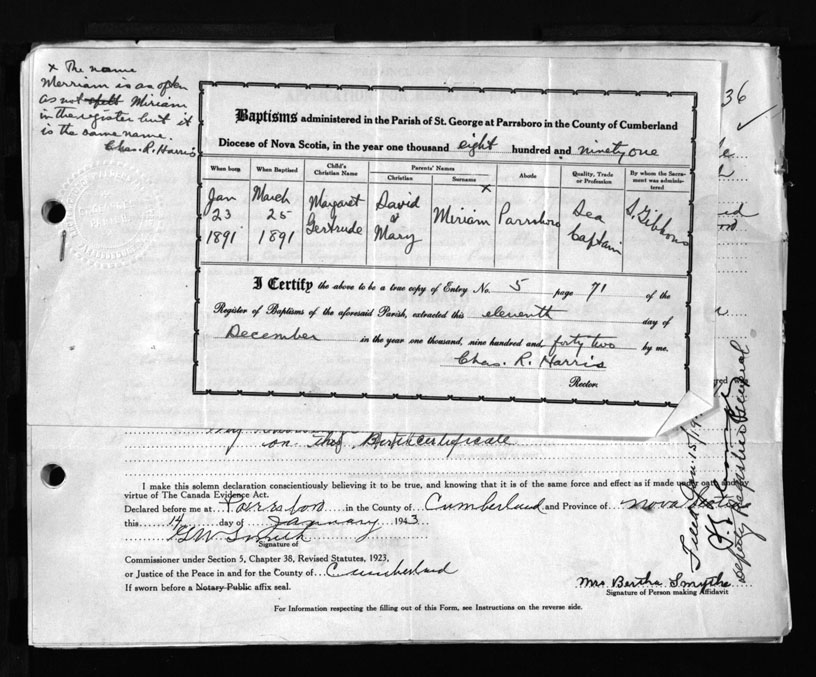 x The name
Merriam is as often
as not spelt Miriam
in the register but it
is the same name.
Chas. R. Harris
36
Baptisms administered in the Parish of St. George at Parrsboro in the County of Cumberland
Diocese of Nova Scotia, in the year one thousand eight hundred and ninety one
When born
When Baptised
Child's Christian Name
Parents' Names
Christian
Surname
Abode
Quality, Trade or Profession
By whom the Sacrament was administered
Jan 23 1891
March 25 1891
Margaret Gertrude
David & Mary
x
Miriam
Parrsboro
Sea Captain
S. Gibbons
I Certify the above to be a true copy of Entry No. 5 page 71 of the
Register of Baptisms of the aforesaid Parish, extracted this eleventh day of
December in the year one thousand, nine hundred and forty two by me.
Chas. R. Harris
Rector.
on the Birth Certificate
I make this solemn declaration conscientiously believing it to be true, and knowing that it is of the same force and effect as if made under oath and
virtue of The Canada Evidence Act.
Declared before me at Parrsboro in the County of Cumberland and Province of Nova Scotia
this 14 day of January 1943
G W Smith
Signature of
Commissioner under Section 5, Chapter 38, Revised Statutes, 1923,
or Justice of the Peace in and for the County of Cumberland
If sworn before a Notary Public affix seal.
Mrs Bertha Smythe
Signature of Person making Affidavit
For Information respecting the filling out of this Form, see Instructions on the reverse side.
Filed Jan. 15/19
Deputy Registrar General